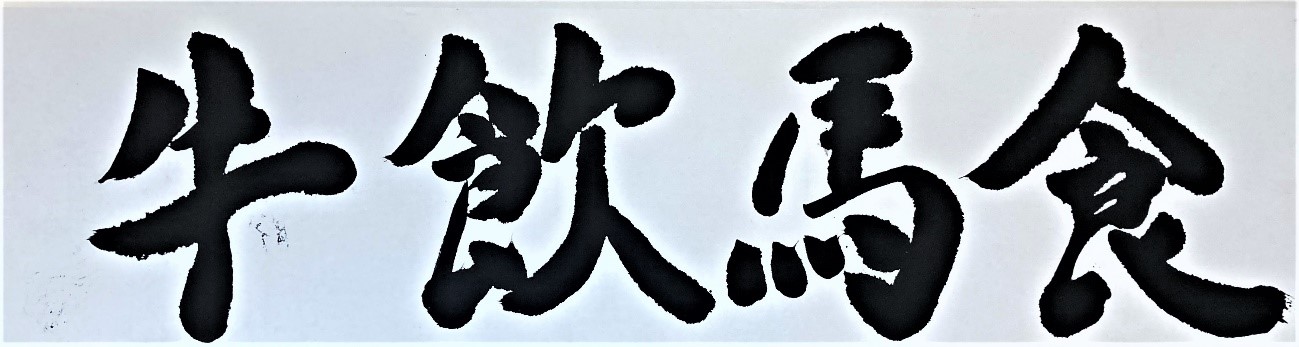 牛飲馬食